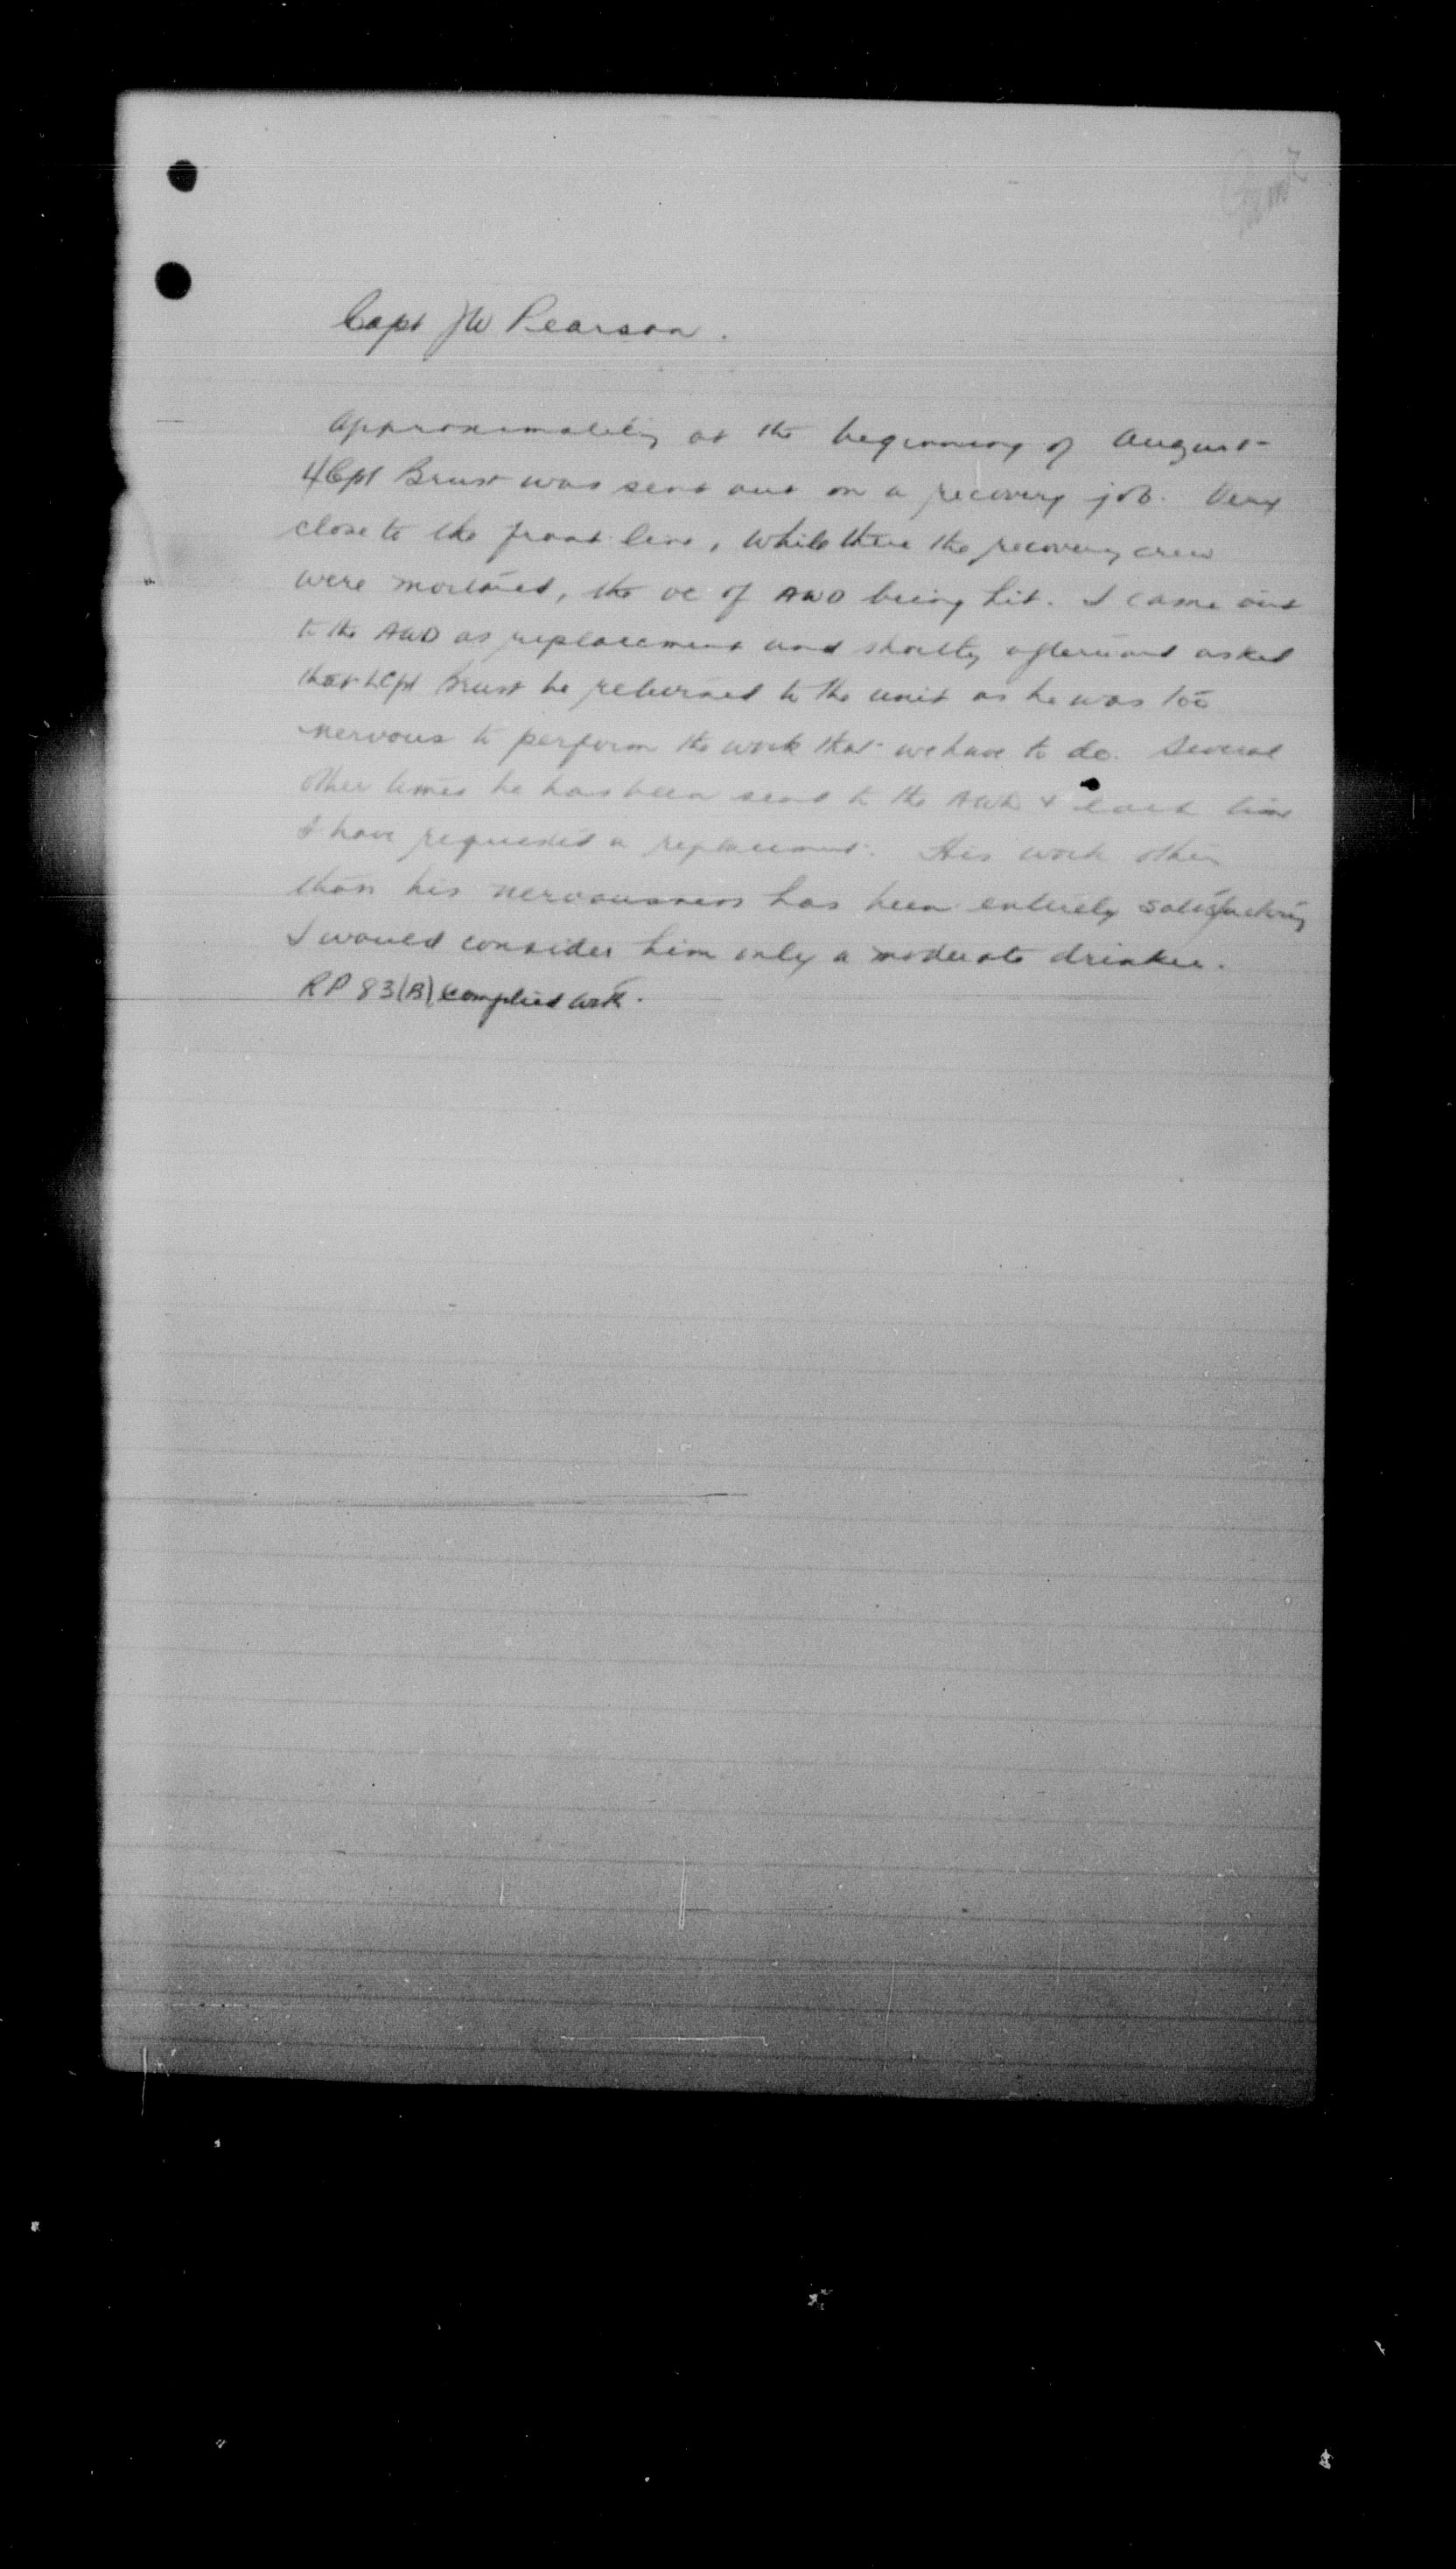 Capt JW Pearson.
Approximately at the beginning of August
L/Cpl Brust was sent out on a recovery job. Very
close to the front line, while there the recovery crew
were mortared, the oc of AWD being hit. I came out
to the AWD as replacement and shortly afterward asked
that L/Cpl Brust be returned to the unit as he was too
nervous to perform the work that we have to do. Several
other times he has been sent to the AWD & each time
I have requested a replacement. His work other
than his nervousness has been entirely satisfactory
I would consider him only a moderate drinker.
RP 83(B) complied with.